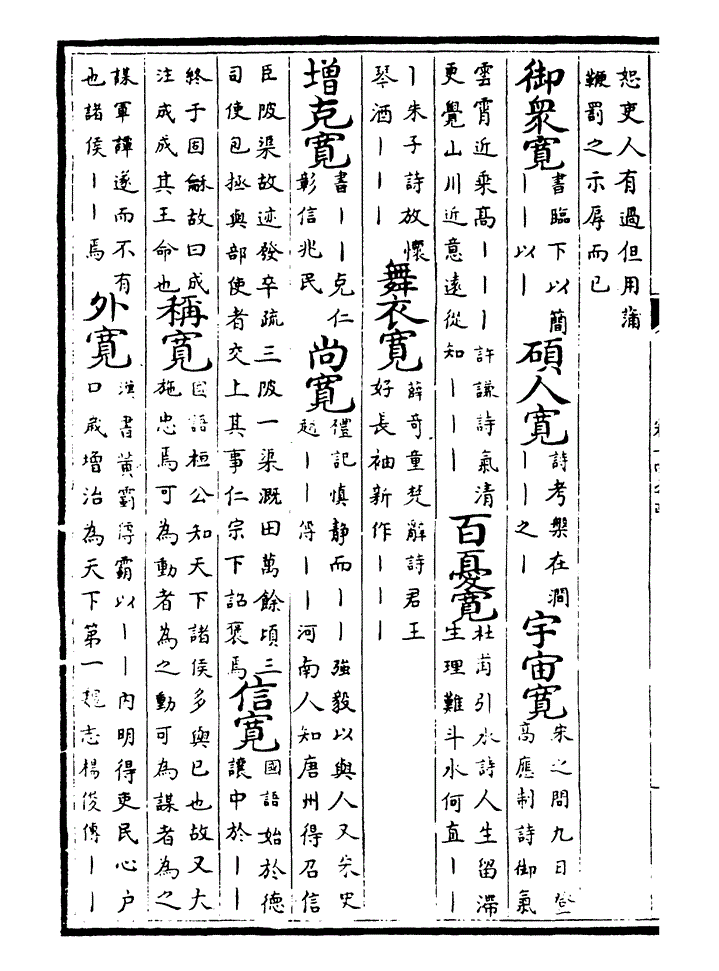 恕吏人有過但用蒲
鞭罰之示辱而已
御衆寬
書臨下以簡
｜｜以｜
碩人寬
詩考槃在澗
｜｜之｜
宇宙寬
宋之問九日登
高應制詩御氣
雲霄近乘高｜｜｜許謙詩氣清
更覺山川近意遠從知｜｜｜
百憂寬
杜甫引水詩人生留滯
生理難斗水何直｜｜
｜朱子詩放懷
琴酒｜｜｜
舞衣寬
薛奇童楚辭詩君王
好長袖新作｜｜｜
增克寬
書｜｜克仁
彰信兆民
尚寬
禮記慎静而｜｜強毅以與人又宋史
趙｜｜傳｜｜河南人知唐州得召信
臣陂渠故迹發卒疏三陂一渠溉田萬餘頃三
司使包拯與部使者交上其事仁宗下詔褒焉
信寬
國語始於德
讓中於｜｜
終于固龢故曰成
注成成其王命也
稱寬
國語桓公知天下諸侯多與已也故又大
施忠焉可為動者為之動可為謀者為之
謀軍譚遂而不有
也諸侯｜｜焉
外寬
漢書黃霸傳霸以｜｜內明得吏民心户
口歲增治為天下第一魏志楊俊傳｜｜